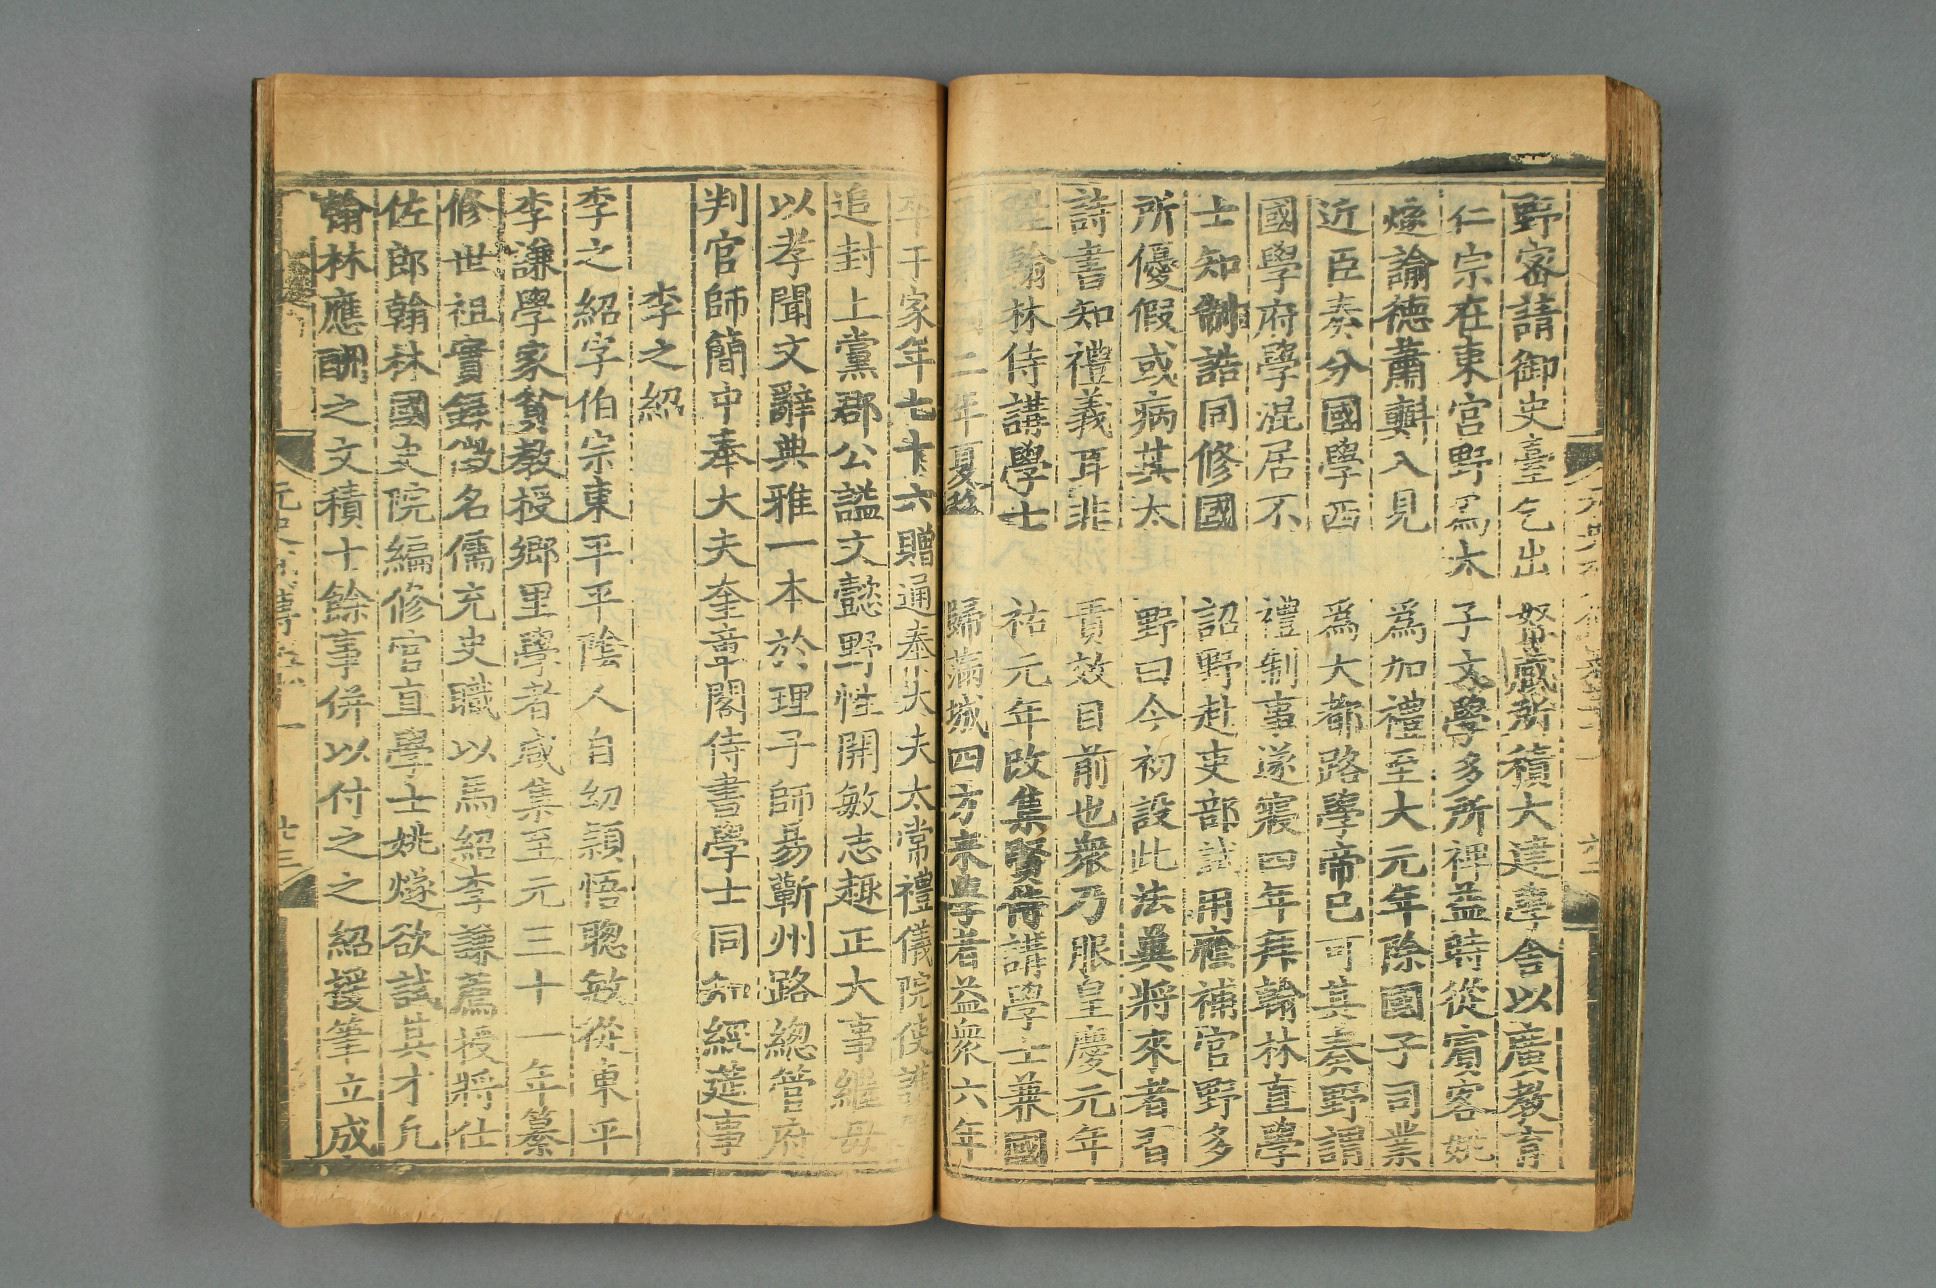 野密請御史臺乞出 帑藏所積大建學舍以廣教育
仁宗在東宮野爲太 子文學多所裨益時從賓客姚
燧諭德蕭㪺入見 爲加禮至大元年除國子司業
近臣奏分國學西 爲大都路學帝已可其奏野謂
國學府學混居不 禮制事遂寢四年拜翰林直學
士知制誥同修國 詔野赴吏部試用廕補官野多
所優假或病其太 野曰今初設此法冀將來者習
詩書知禮義耳非 責效目前也衆乃服皇慶元年
陞翰林侍講學士 祐元年改集賢侍講學士兼國
二年夏移 歸滿城四方來學者益衆六年
卒于家年七十六贈通奉大夫太常禮儀院使護
追封上黨郡公謚文懿野性開敏志趣正大事繼母
以孝聞文辭典雅一本於理子師易蘄州路總管府
判官師簡中奉大夫奎章閣侍書學士同知經筵事
李之紹
李之紹字伯宗東平平陰人自幼頴悟聰敏從東平
李謙學家貧教授鄉里學者咸集至元三十一年纂
修世祖實錄徵名儒充史職以馬紹李謙薦授將仕
佐郎翰林國史院編修官直學士姚燧欲試其才凡
翰林應酬之文積十餘事併以付之之紹援筆立成
元史 傳 廿三